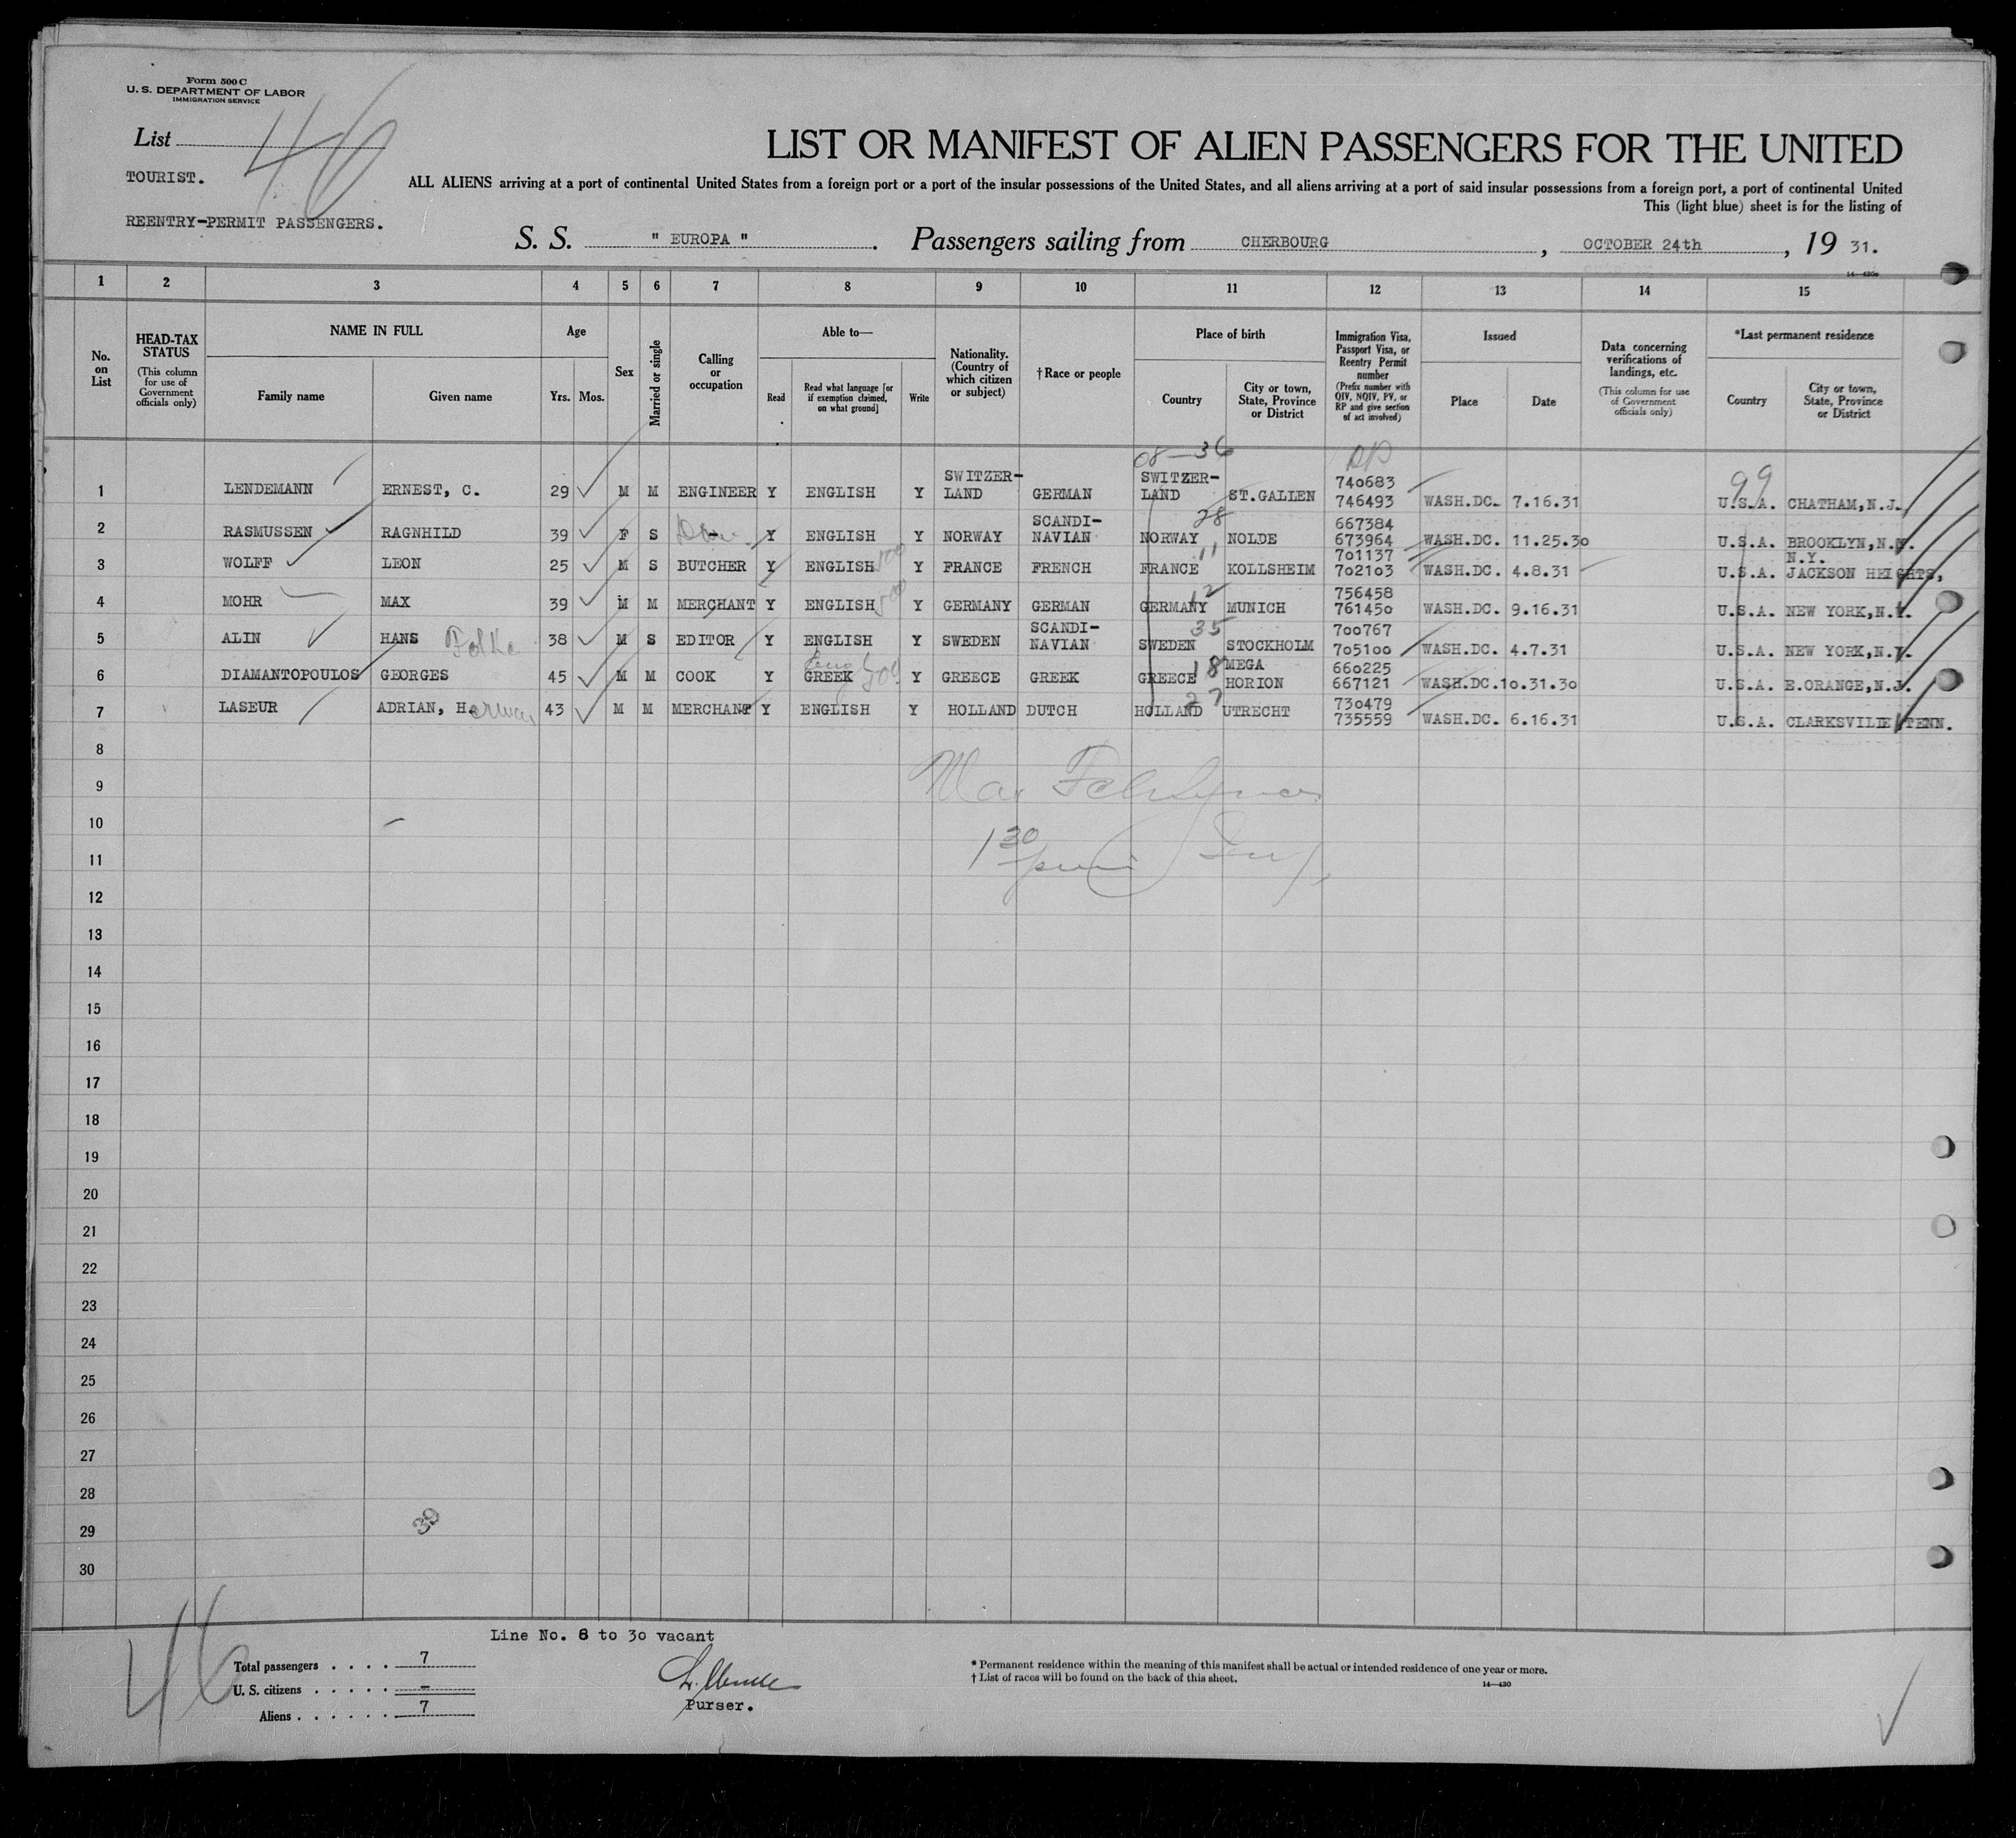 Form 500 C
U. S. DEPARTMENT OF LABOR
IMMIGRATION SERVICE
List 46
TOURIST.
REENTRY-PERMIT PASSENGERS.
LIST OR MANIFEST OF ALIEN PASSENGERS FOR THE UNITED
ALL ALIENS arriving at a port of continental United States from a foreign port or a port of the insular possessions of the United States, and all aliens arriving at a port of said insular possessions from a foreign port, a port of continental United
This (light blue) sheet is for the listing of
S. S. " EUROPA ". Passengers sailing from CHERBOURG, OCTOBER 24th, 19 31.
1 2 3 4 5 6 7 8 9 10 11 12 13 14 15
No. on List
HEAD-TAX STATUS (This column for use of Government officials only)
NAME IN FULL
Family name
Given name
Age
Yrs. Mos.
Sex
Married or single
Calling or occupation
Able to—
Read
Read what language [or if exemption claimed, on what ground]
Write
Nationality. (Country of which citizen or subject)
†Race or people
Place of birth
Country
City or town, State, Province or District
Immigration Visa, Passport Visa, or Reentry Permit number (Prefix number with QIV, NQIV, PV, or RP and give section of act involved)
Issued
Place
Date
Data concerning verifications of landings, etc. (This column for use of Government officials only)
*Last permanent residence
Country
City or town, State, Province or District
08-36
99
1 LENDEMANN ERNEST, C. 29 M M ENGINEER Y ENGLISH Y SWITZER-LAND GERMAN SWITZER-LAND ST.GALLEN 740683 746493 WASH.DC. 7.16.31 U.S.A. CHATHAM,N.J.
2 RASMUSSEN RAGNHILD 39 F S Y ENGLISH Y NORWAY SCANDI-NAVIAN NORWAY 28 NOLDE 667384 673964 WASH.DC. 11.25.30 U.S.A. BROOKLYN,N.Y.
3 WOLFF LEON 25 M S BUTCHER Y ENGLISH Y FRANCE FRENCH FRANCE 11 KOLLSHEIM 701137 702103 WASH.DC. 4.8.31 U.S.A. JACKSON HEIGHTS, N.Y.
4 MOHR MAX 39 M M MERCHANT Y ENGLISH Y GERMANY GERMAN GERMANY 12 MUNICH 756458 761450 WASH.DC. 9.16.31 U.S.A. NEW YORK,N.Y.
5 ALIN HANS Folke 38 M S EDITOR Y ENGLISH Y SWEDEN SCANDI-NAVIAN SWEDEN 35 STOCKHOLM 700767 705100 WASH.DC. 4.7.31 U.S.A. NEW YORK,N.Y.
6 DIAMANTOPOULOS GEORGES 45 M M COOK Y GREEK Engl Y GREECE GREEK GREECE 18 MEGA HORION 660225 667121 WASH.DC. 10.31.30 U.S.A. E.ORANGE,N.J.
7 LASEUR ADRIAN, Herman 43 M M MERCHANT Y ENGLISH Y HOLLAND DUTCH HOLLAND 27 UTRECHT 730479 735559 WASH.DC. 6.16.31 U.S.A. CLARKSVILLE TENN.
8
9
10
11
12
13
14
15
16
17
18
19
20
21
22
23
24
25
26
27
28
29
30
39
Line No. 8 to 30 vacant
46
Total passengers . . . . 7
U. S. citizens . . . . . -
Aliens . . . . . . 7
Purser.
* Permanent residence within the meaning of this manifest shall be actual or intended residence of one year or more.
† List of races will be found on the back of this sheet.
14—430